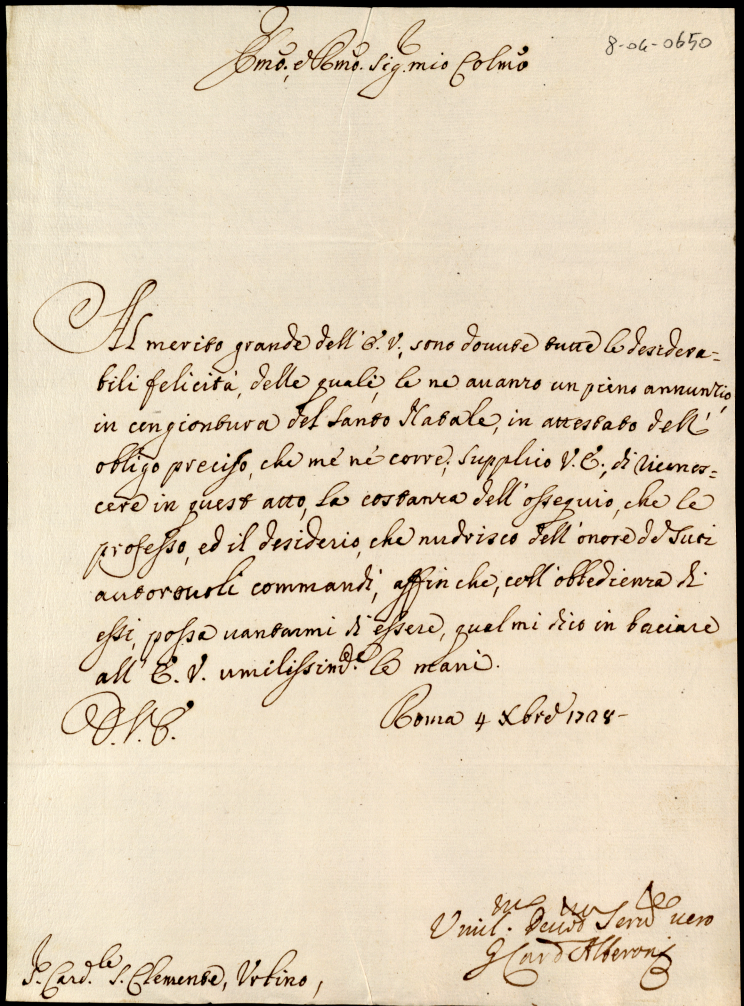 8-06-0650
Emo. e Rmo. Sig. mio Colmo
Al merito grande dell' E. V., sono douute tutte le desidera=
bili felicità, delle quali, le ne auanzo un pieno annunzio,
in congiontura del Santo Natale, in attestato dell'
obligo preciso, che mé né corre; supplico V. E., di riconos=
cere in quest atto, la costanza dell' ossequio, che le
professo, ed il desiderio, che nudrisco dell' onore de Suoi
autoreuoli commandi, affin che, coll' obbedienza di
essi, possa uantarmi di essere, qual mi dico in baciare
all' E. V. umilissimte. le mani.
D. V. E.
Roma 4 Xbre 1728-
Umil. Deuo Seru uero
G Card Alberoni
S. Card.le S. Clemente, Urbino,